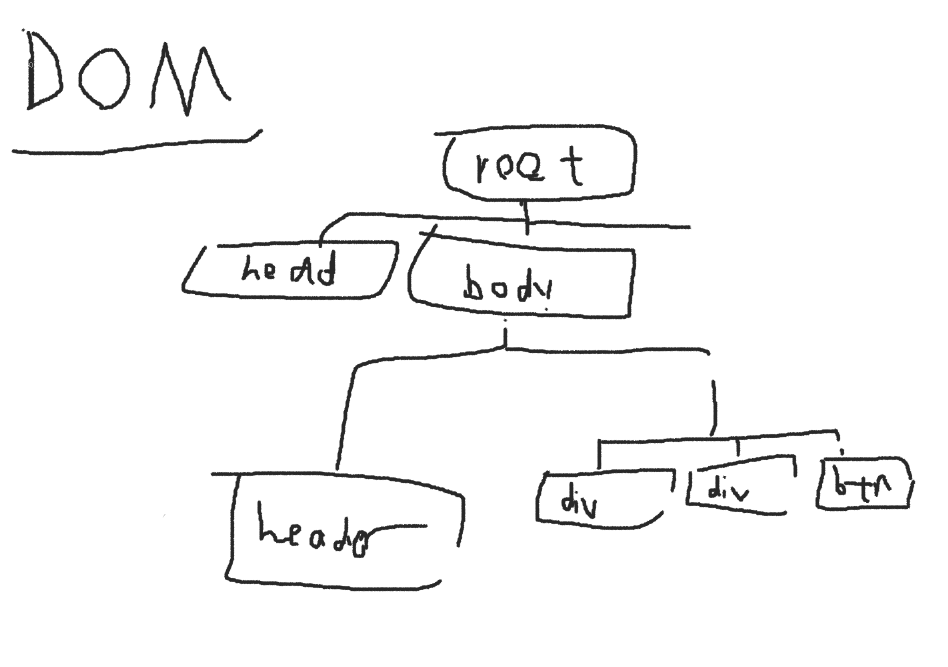 DOM
root
head
body
header
div
div
btn